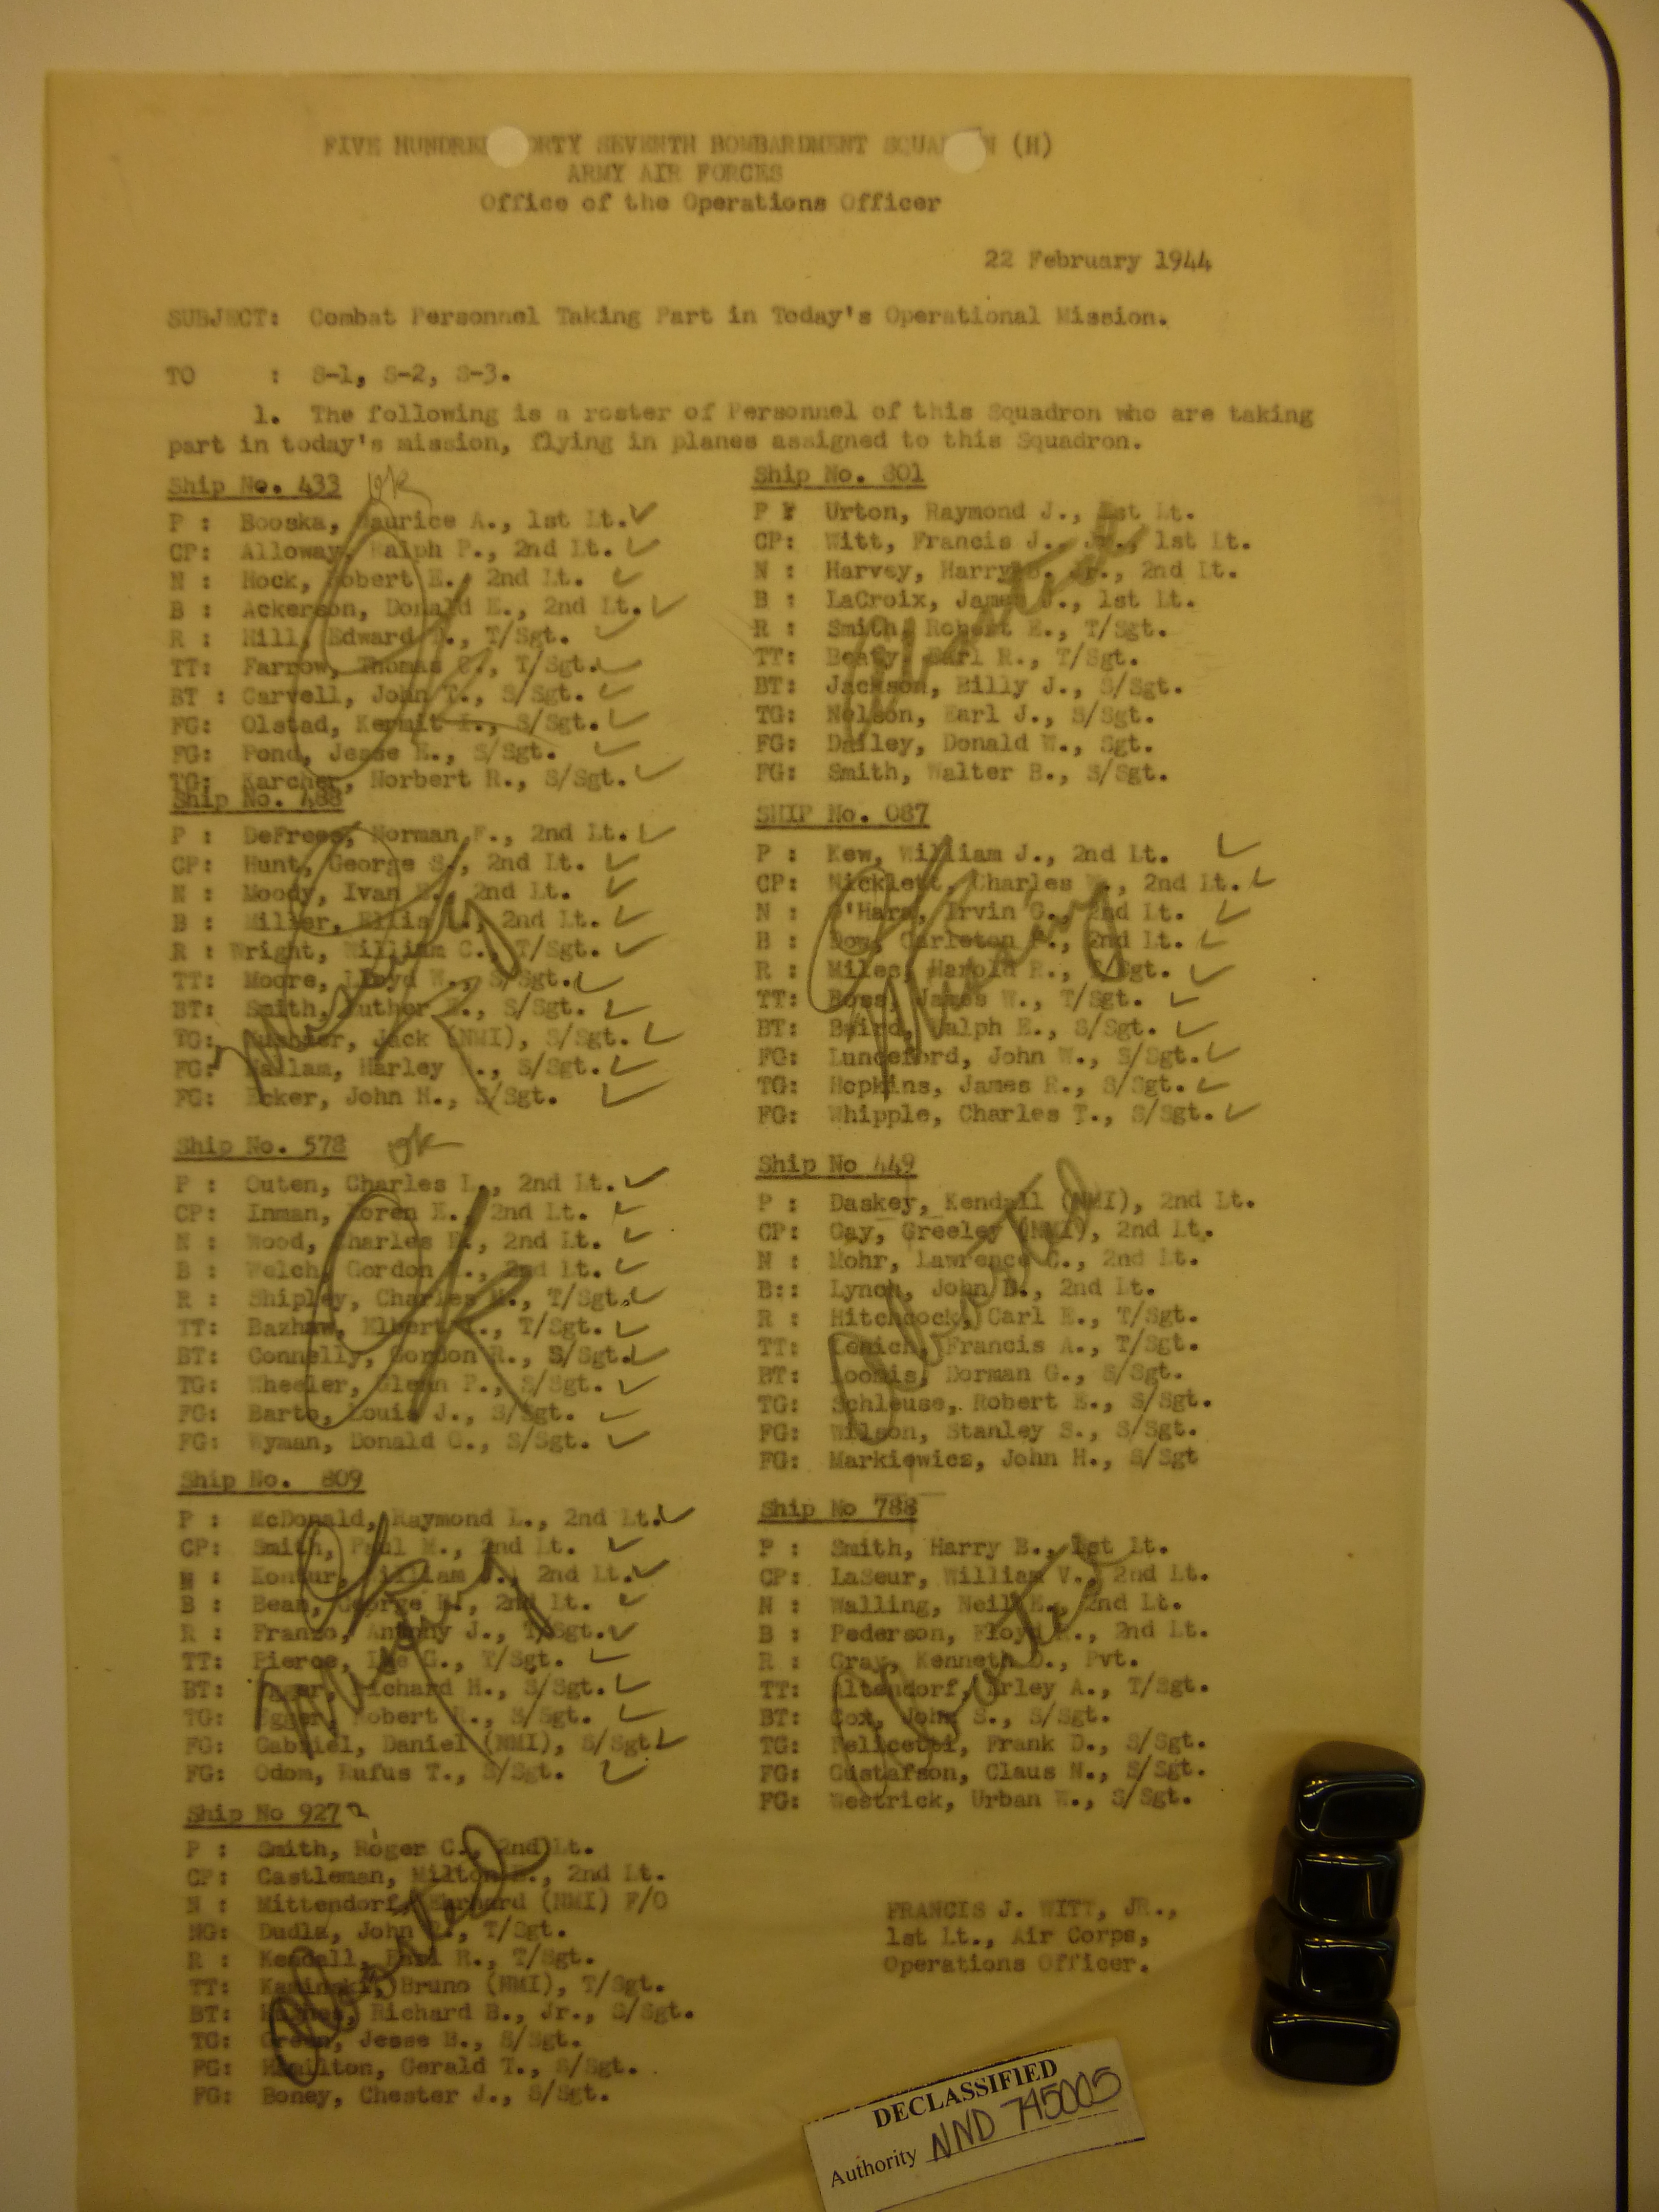 FIVE HUNDRE ORTY SEVENTH BOMBARDMENT SQUA N (H)
ARMY AIR FORCES
Office of the Operations Officer
22 February 1944
SUBJECT: Combat Personnel Taking Part in Today's Operational Mission.
TO : S-1, S-2, S-3.
1. The following is a roster of Personnel of this Squadron who are taking
part in today's mission, flying in planes assigned to this Squadron.
Ship No. 433 ok
P : Booska, Maurice A., 1st Lt. ✓
CP: Alloway, Ralph P., 2nd Lt. ✓
N : Hock, Robert E., 2nd Lt. ✓
B : Ackerson, Donald E., 2nd Lt. ✓
R : Hill, Edward , T/Sgt. ✓
TT: Farrow, Thomas C., T/Sgt. ✓
BT : Carvell, John T., S/Sgt. ✓
FG: Olstad, Kermit , S/Sgt. ✓
FG: Pond, Jesse E., S/Sgt. ✓
TG: Karcher, Norbert R., S/Sgt. ✓
Ship No. 488
P : DeFrees, Norman F., 2nd Lt. ✓
CP: Hunt, George S., 2nd Lt. ✓
N : Moody, Ivan , 2nd Lt. ✓
B : Miller, Ellis , 2nd Lt. ✓
R : Wright, William C., T/Sgt. ✓
TT: Moore, Lloyd W., S/Sgt. ✓
BT: Smith, Luther , S/Sgt. ✓
TG: Jack (NMI), S/Sgt. ✓
FG: Hallam, Harley , S/Sgt. ✓
FG: Ecker, John H., S/Sgt. ✓
Ship No. 578 ok
P : Outen, Charles L., 2nd Lt. ✓
CP: Inman, Loren E., 2nd Lt. ✓
N : Wood, Charles , 2nd Lt. ✓
B : Welch, Gordon , 2nd Lt. ✓
R : Shipley, Charles , T/Sgt. ✓
TT: Elbert , T/Sgt. ✓
BT: Connelly, Gordon R., S/Sgt. ✓
TG: Wheeler, Glenn P., S/Sgt. ✓
FG: Barto, Louis J., S/Sgt. ✓
FG: Wyman, Donald C., S/Sgt. ✓
Ship No. 809
P : McDonald, Raymond L., 2nd Lt. ✓
CP: Smith, Paul M., 2nd Lt. ✓
N : William J., 2nd Lt. ✓
B : Bean, George , 2nd Lt. ✓
R : Franzo, Anthony J., T/Sgt. ✓
TT: Pierce, G., T/Sgt. ✓
BT: Egger, Richard H., S/Sgt. ✓
TG: Egger, Robert R., S/Sgt. ✓
FG: Gabriel, Daniel (NMI), S/Sgt ✓
FG: Odom, Rufus T., S/Sgt. ✓
Ship No 927
P : Smith, Roger C., 2nd Lt.
CP: Castleman, Milton , 2nd Lt.
N : Mittendorf, (NMI) F/O
NG: Dudla, John , T/Sgt.
R : Kendall, Earl R., T/Sgt.
TT: Kaminski, Bruno (NMI), T/Sgt.
BT: Richard B., Jr., S/Sgt.
TG: Green, Jesse B., S/Sgt.
FG: Hamilton, Gerald T., S/Sgt.
FG: Boney, Chester J., S/Sgt.
Ship No. 801
P : Urton, Raymond J., 1st Lt.
CP: Witt, Francis J., Jr., 1st Lt.
N : Harvey, Harry , Jr., 2nd Lt.
B : LaCroix, James J., 1st Lt.
R : Smith, Robert E., T/Sgt.
TT: Beaty, Earl R., T/Sgt.
BT: Jackson, Billy J., S/Sgt.
TG: Nelson, Earl J., S/Sgt.
FG: Dailey, Donald W., Sgt.
FG: Smith, Walter B., S/Sgt.
SHIP No. 087
P : Kew, William J., 2nd Lt. ✓
CP: Nicklett, Charles , 2nd Lt. ✓
N : O'Hara, Irvin G., 2nd Lt. ✓
B : Dow, Carleton , 2nd Lt. ✓
R : Miles, Harold R., T/Sgt. ✓
TT: Ross, James W., T/Sgt. ✓
BT: Baird, Ralph E., S/Sgt. ✓
FG: Lunceford, John W., S/Sgt. ✓
TG: Hopkins, James R., S/Sgt. ✓
FG: Whipple, Charles T., S/Sgt. ✓
Ship No 449
P : Daskey, Kendall (NMI), 2nd Lt.
CP: Gay, Greeley (NMI), 2nd Lt.
N : Mohr, Lawrence C., 2nd Lt.
B:: Lynch, John B., 2nd Lt.
R : Hitchcock, Carl E., T/Sgt.
TT: Francis A., T/Sgt.
BT: Loomis, Dorman G., S/Sgt.
TG: Schleuse, Robert E., S/Sgt.
FG: Wilson, Stanley S., S/Sgt.
FG: Markiewicz, John H., S/Sgt
Ship No 788
P : Smith, Harry B., 1st Lt.
CP: LaSeur, William V., 2nd Lt.
N : Walling, Neil E., 2nd Lt.
B : Pederson, Floyd , 2nd Lt.
R : Gray, Kenneth D., Pvt.
TT: Altendorf, Arley A., T/Sgt.
BT: Cox, John S., S/Sgt.
TG: Felicetti, Frank D., S/Sgt.
FG: Gustafson, Claus N., S/Sgt.
FG: Westrick, Urban W., S/Sgt.
FRANCIS J. WITT, JR.,
1st Lt., Air Corps,
Operations Officer.
DECLASSIFIED
Authority NND 745005